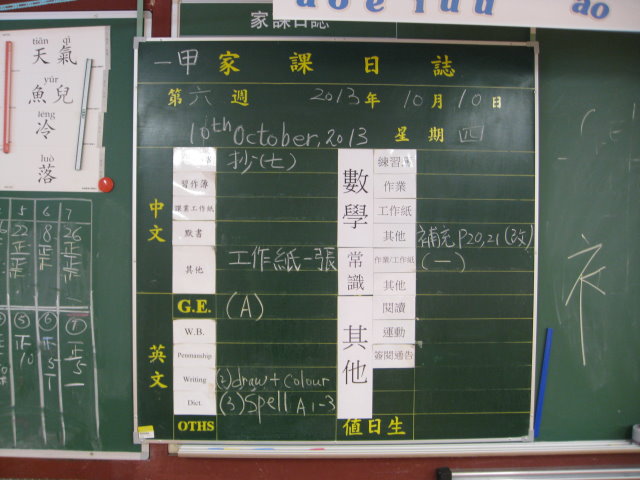 家課日誌
一甲家課日誌
第六週 2013年10月10日
10th October, 2013 星期四
中文
抄(七)
習作簿
課業工作紙
默書
其他 工作紙一張
英文
G.E. (A)
W.B.
Penmanship
Writing (2) draw + colour
Dict. (3) Spell A1-3
OTHS
數學
練習
作業
工作紙
其他 補充P20,21(改)
常識
作業/工作紙 (一)
其他
其他
閱讀
運動
簽閱通告
值日生
tiān qì
天氣
yúr
魚兒
lěng
冷
luò
落
5 6 7
22 8 26
正 正 正
⑤ ⑥ ⑦
正 正 正
10 5 5
ao